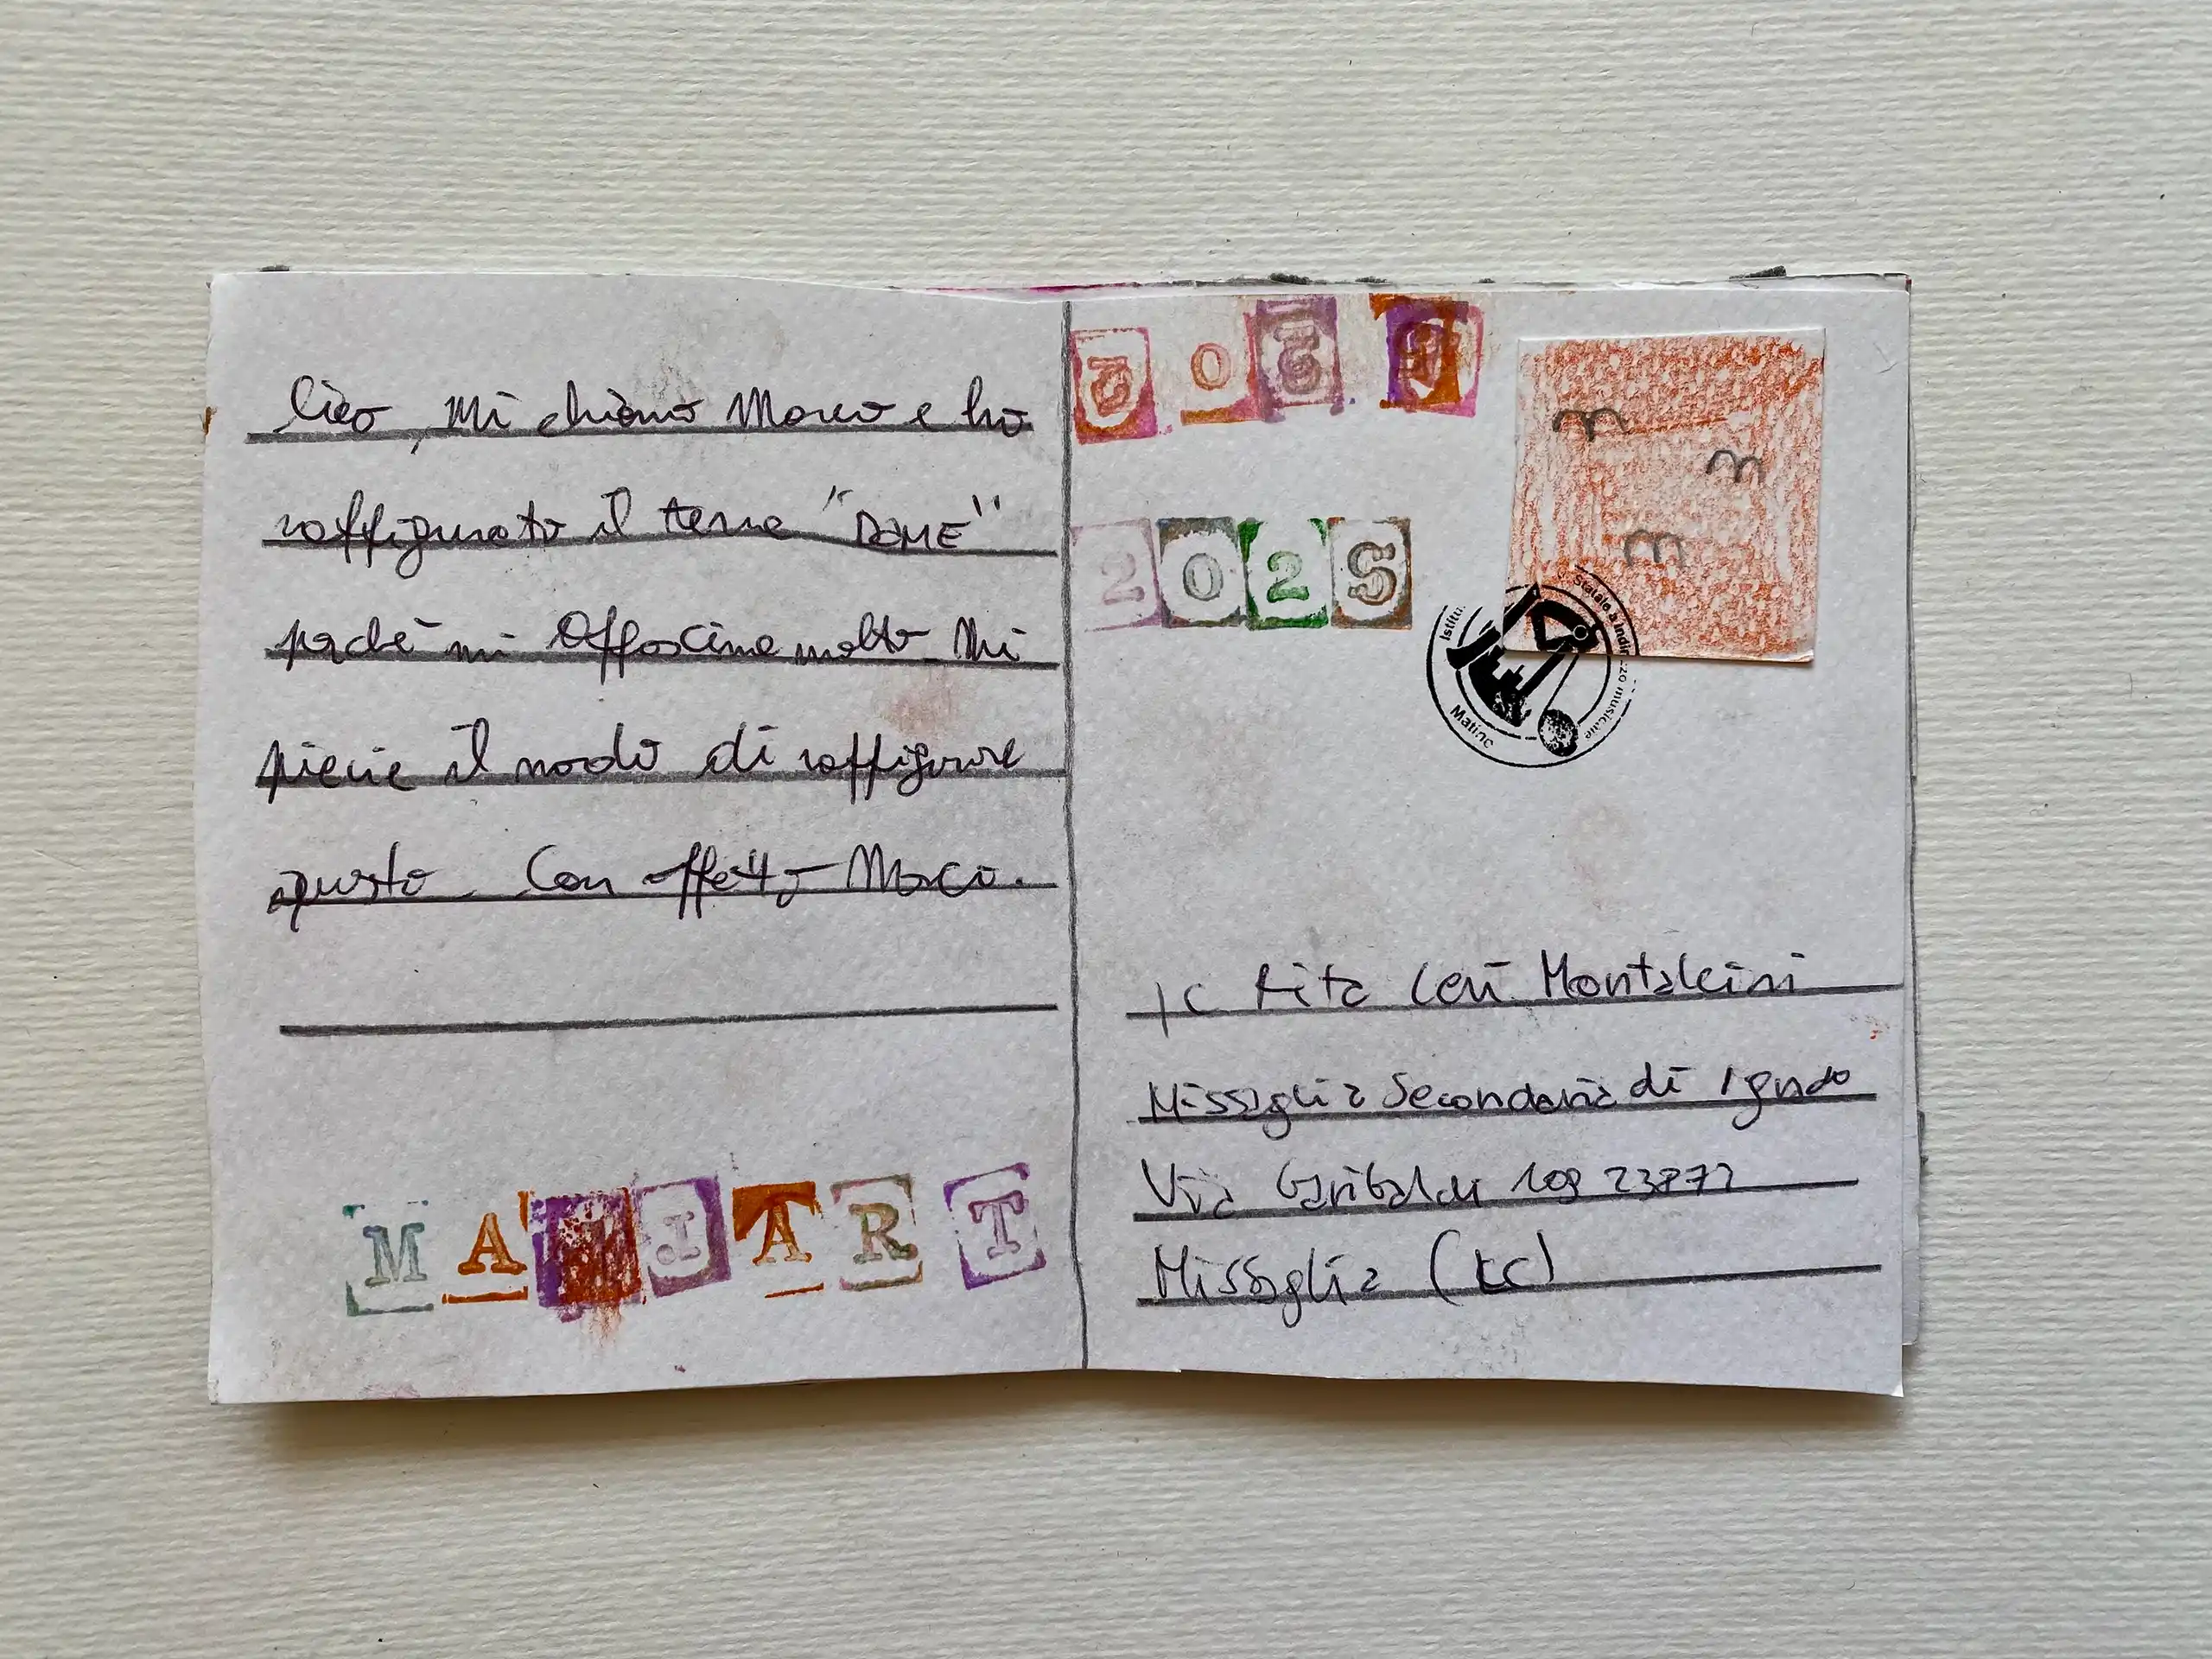 Ciao, mi chiamo Marco e ho
raffigurato il tema "DAME"
perchè mi affascina molto. Mi
piacie il modo di raffigurare
questo. Con affetto Marco.
MAILART
2025
Istitu Statale a indirizzo musicale
Matino
IC Rita Levi Montalcini
Missaglia Secondaria di I grado
Via Garibaldi 109 23873
Missaglia (LC)